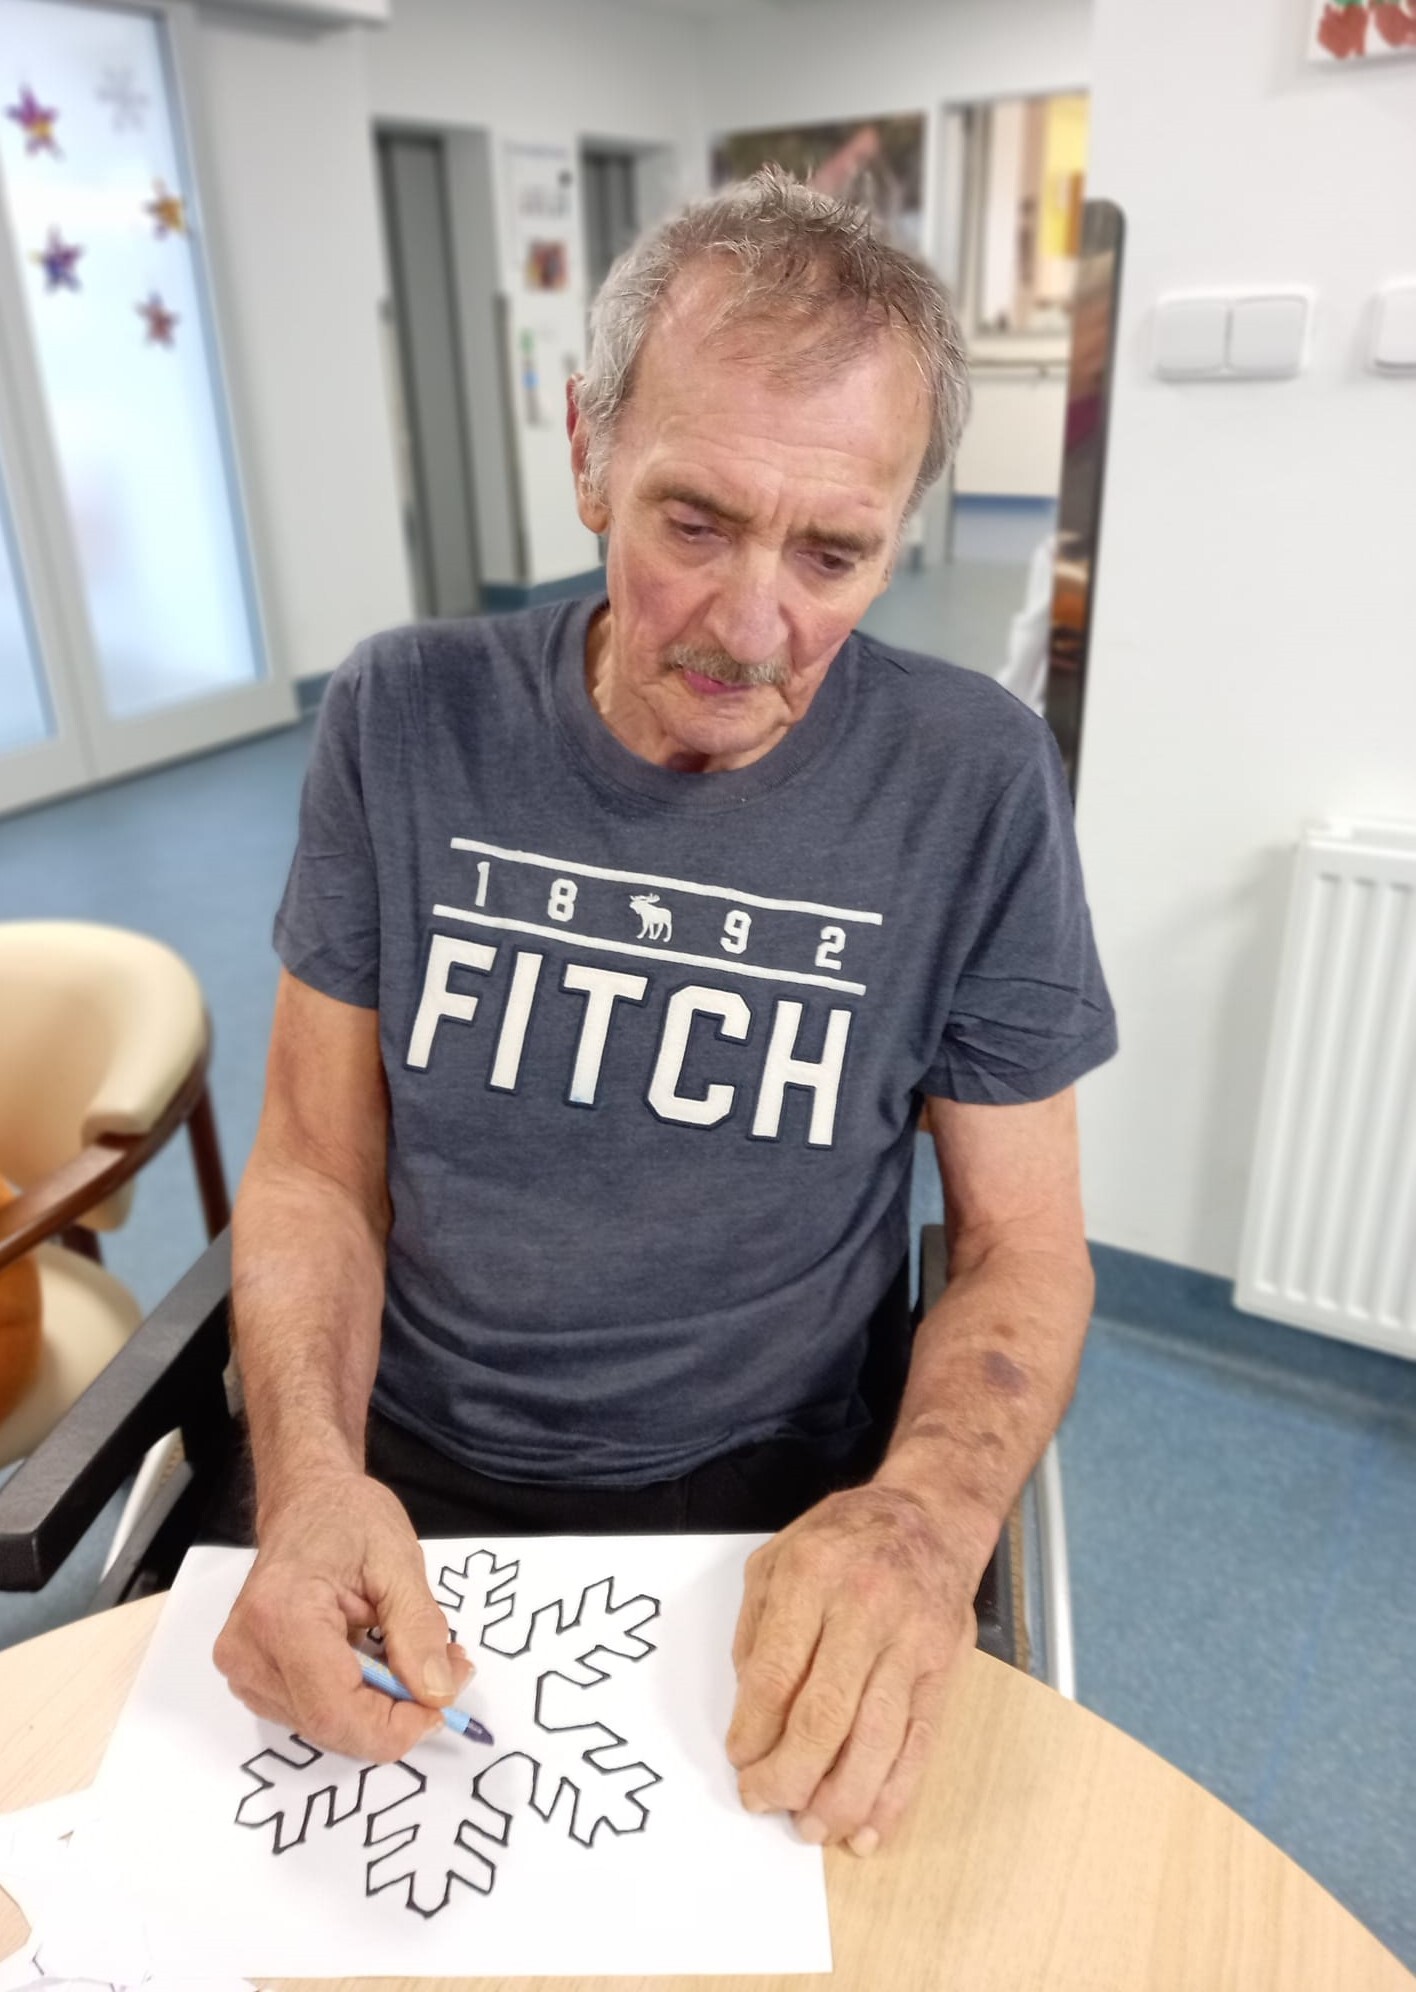 1 8 9 2
FITCH